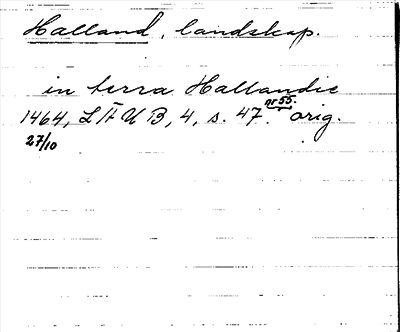 Halland, landskap.
in terra Hallandie
1464, LÄUB, 4, s. 47. nr 55. orig.
27/10